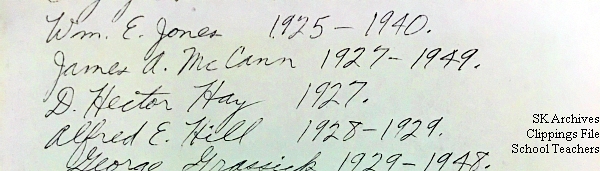 Wm. E. Jones 1925 - 1940.
James A. McCann 1927 - 1949.
D. Hector Hay 1927.
Alfred E. Hill 1928 - 1929.
George Grassick 1929 - 1948.
SK Archives
Clippings File
School Teachers